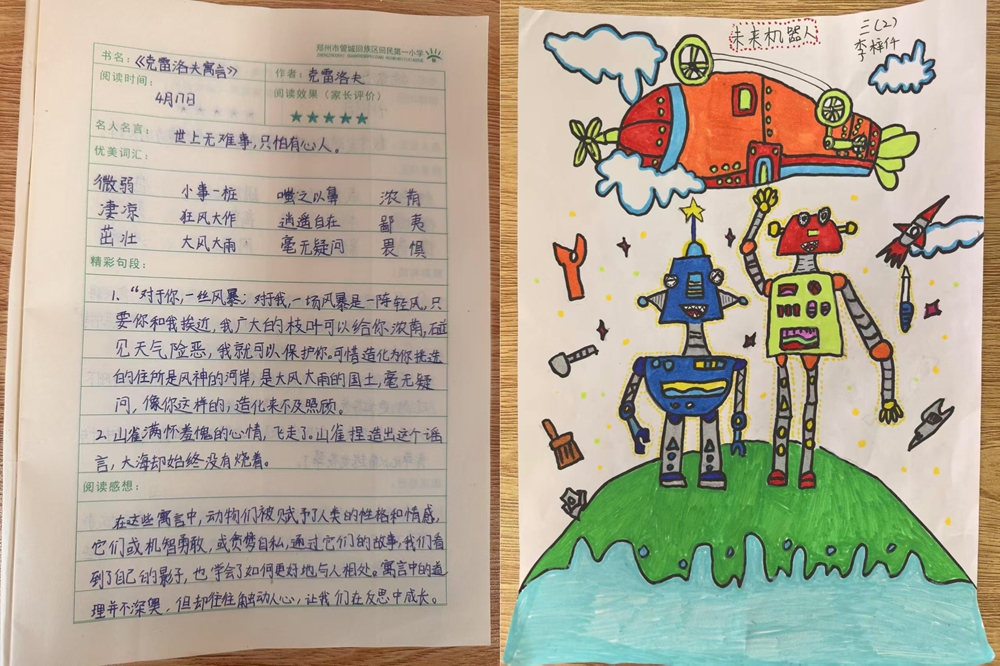 郑州市管城回族区回民第一小学
书名：《克雷洛夫寓言》
作者：克雷洛夫
阅读时间：
4月17日
阅读效果（家长评价）
★★★★★
名人名言：世上无难事，只怕有心人。
优美词汇：
微弱 小事一桩 嗤之以鼻 浓荫
凄凉 狂风大作 逍遥自在 鄙夷
茁壮 大风大雨 毫无疑问 畏惧
精彩句段：
1、“对于你，一丝风暴；对于我，一场风暴是一阵轻风。只
要你和我挨近，我广大的枝叶可以给你浓荫，碰
见天气险恶，我就可以保护你。可惜造化为你挑选
的住所是风神的河岸，是大风大雨的国土，毫无疑
问，像你这样的，造化来不及照顾。
2、山雀满怀羞愧的心情，飞走了。山雀捏造出这个谣
言，大海却始终没有烧着。
阅读感想：
在这些寓言中，动物们被赋予了人类的性格和情感，
它们或机智勇敢，或贪婪自私，通过它们的故事，我们看
到了自己的影子，也学会了如何更好地与人相处。寓言中的道
理并不深奥，但却往往触动人心，让我们在反思中成长。
未来机器人
三(2)
李梓仟